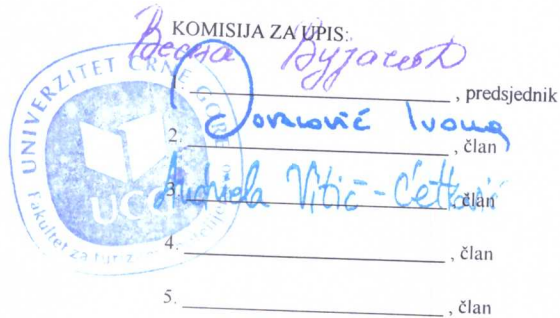 KOMISIJA ZA UPIS:
Весна Вујачић
1. , predsjednik
Jovović Ivona
2. , član
Andriela Vitić-Ćetković
3. , član
4. , član
5. , član
UNIVERZITET CRNE GORE
UCG
Fakultet za turizam